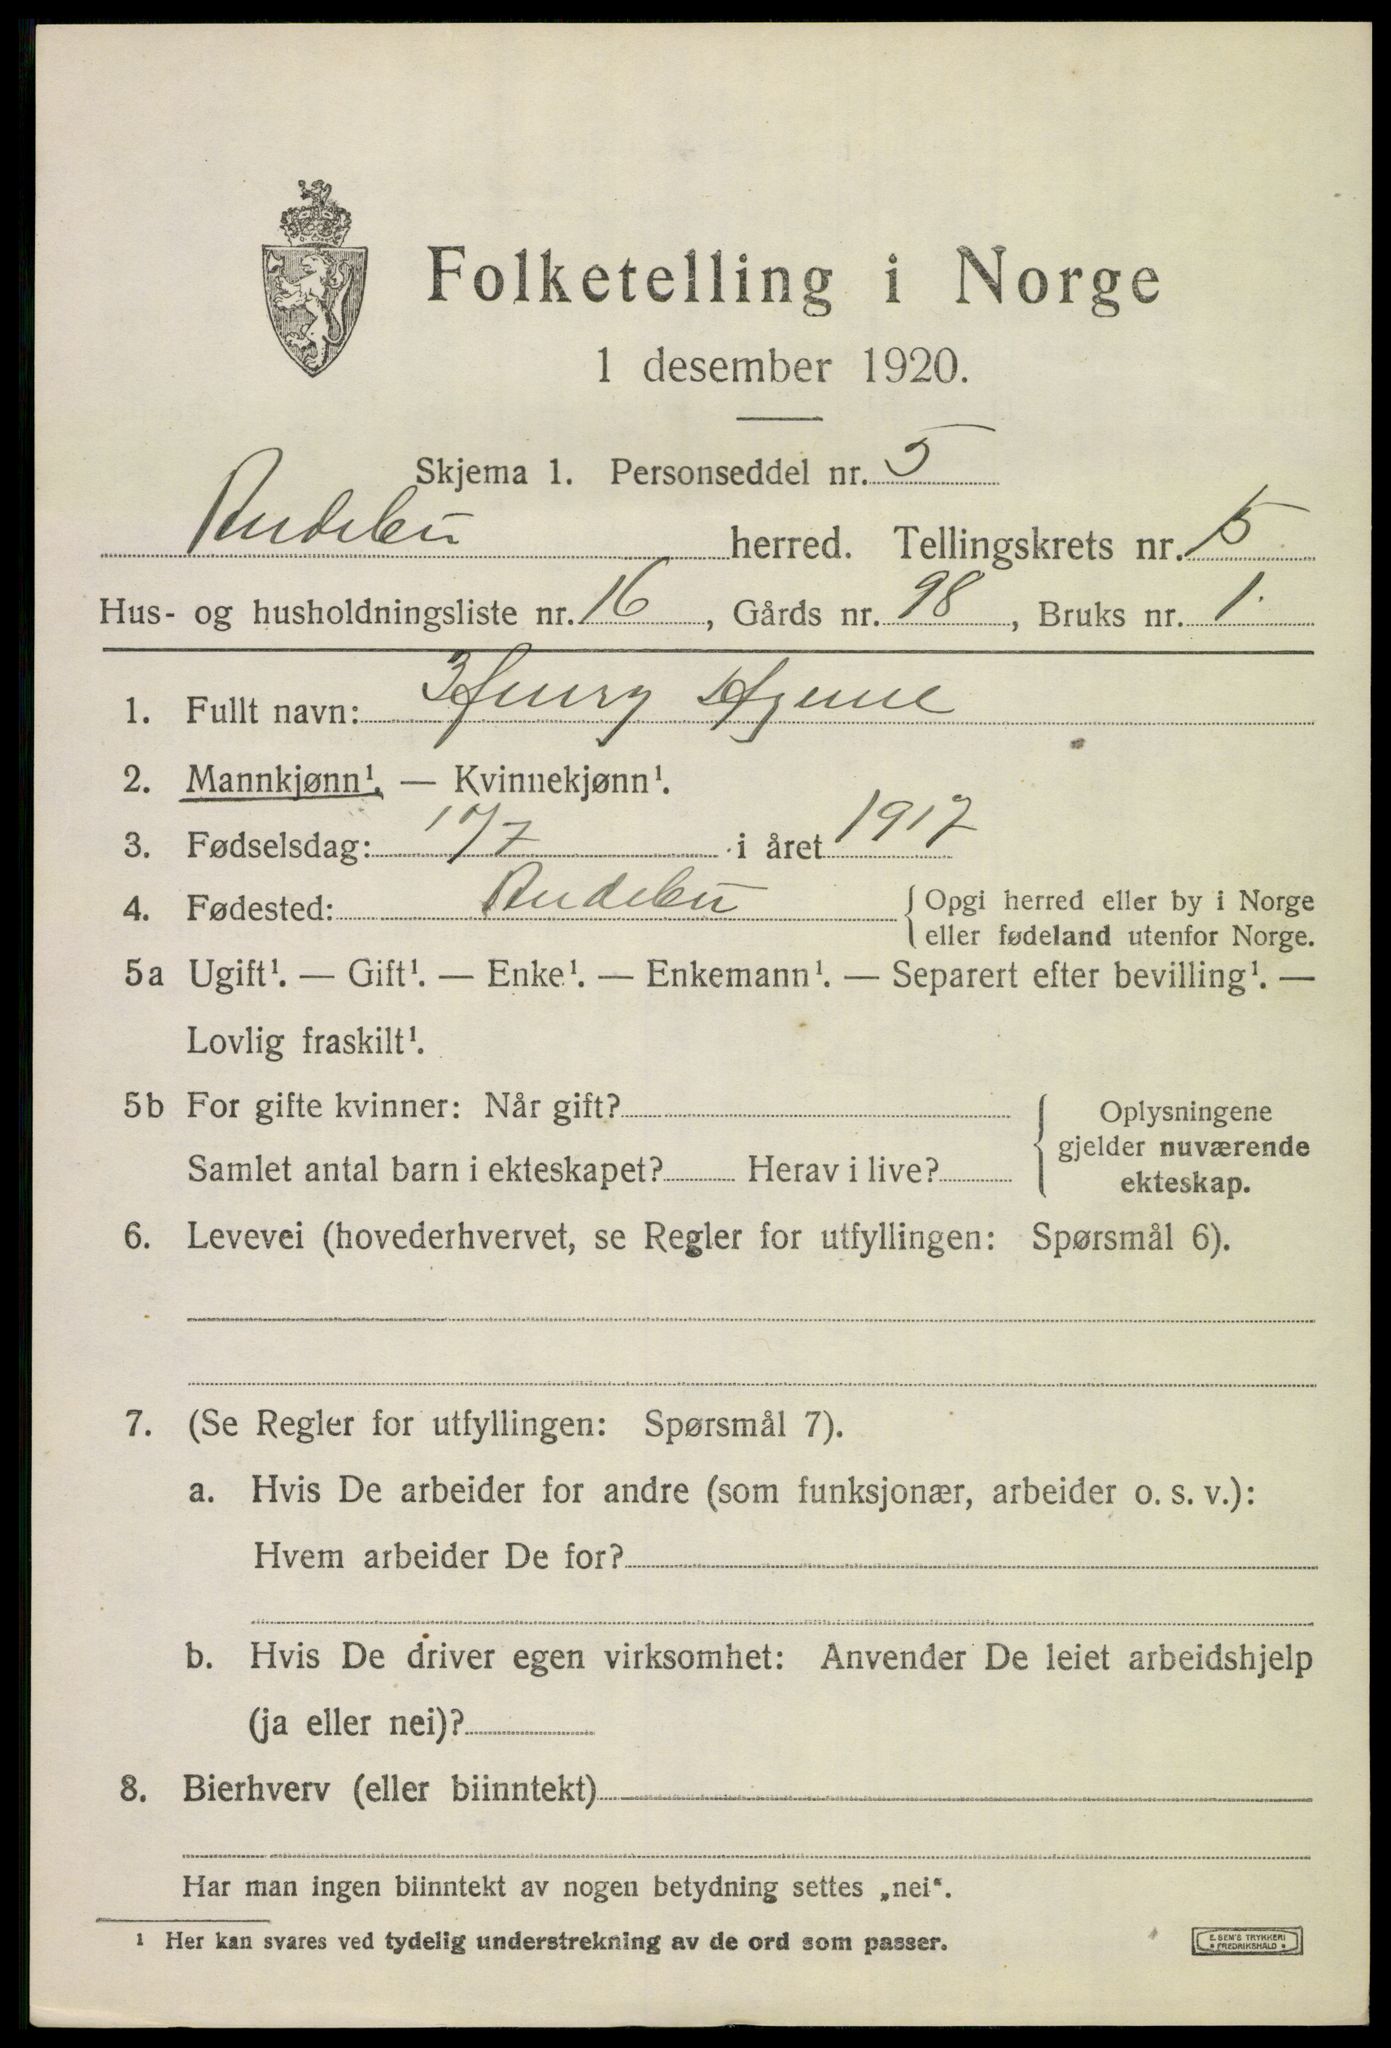 Folketelling i Norge
1 desember 1920.
Skjema 1. Personseddel nr. 5
Andebu herred. Tellingskrets nr. 5
Hus- og husholdningsliste nr. 16, Gårds nr. 98, Bruks nr. 1.
1. Fullt navn: Henry Hjerne
2. Mannkjønn¹. — Kvinnekjønn¹.
3. Fødselsdag: 17/7 i året 1917
4. Fødested: Andebu { Opgi herred eller by i Norge
eller fødeland utenfor Norge.
5a Ugift¹. — Gift¹. — Enke¹. — Enkemann¹. — Separert efter bevilling¹. —
Lovlig fraskilt¹.
5b For gifte kvinner: Når gift?
Samlet antal barn i ekteskapet? Herav i live?
{ Oplysningene
gjelder nuværende
ekteskap.
6. Levevei (hovederhvervet, se Regler for utfyllingen: Spørsmål 6).
7. (Se Regler for utfyllingen: Spørsmål 7).
a. Hvis De arbeider for andre (som funksjonær, arbeider o. s. v.):
Hvem arbeider De for?
b. Hvis De driver egen virksomhet: Anvender De leiet arbeidshjelp
(ja eller nei)?
8. Bierhverv (eller biinntekt)
Har man ingen biinntekt av nogen betydning settes „nei“.
¹ Her kan svares ved tydelig understrekning av de ord som passer.
E. SEM'S TRYKKERI
• FREDRIKSHALD •